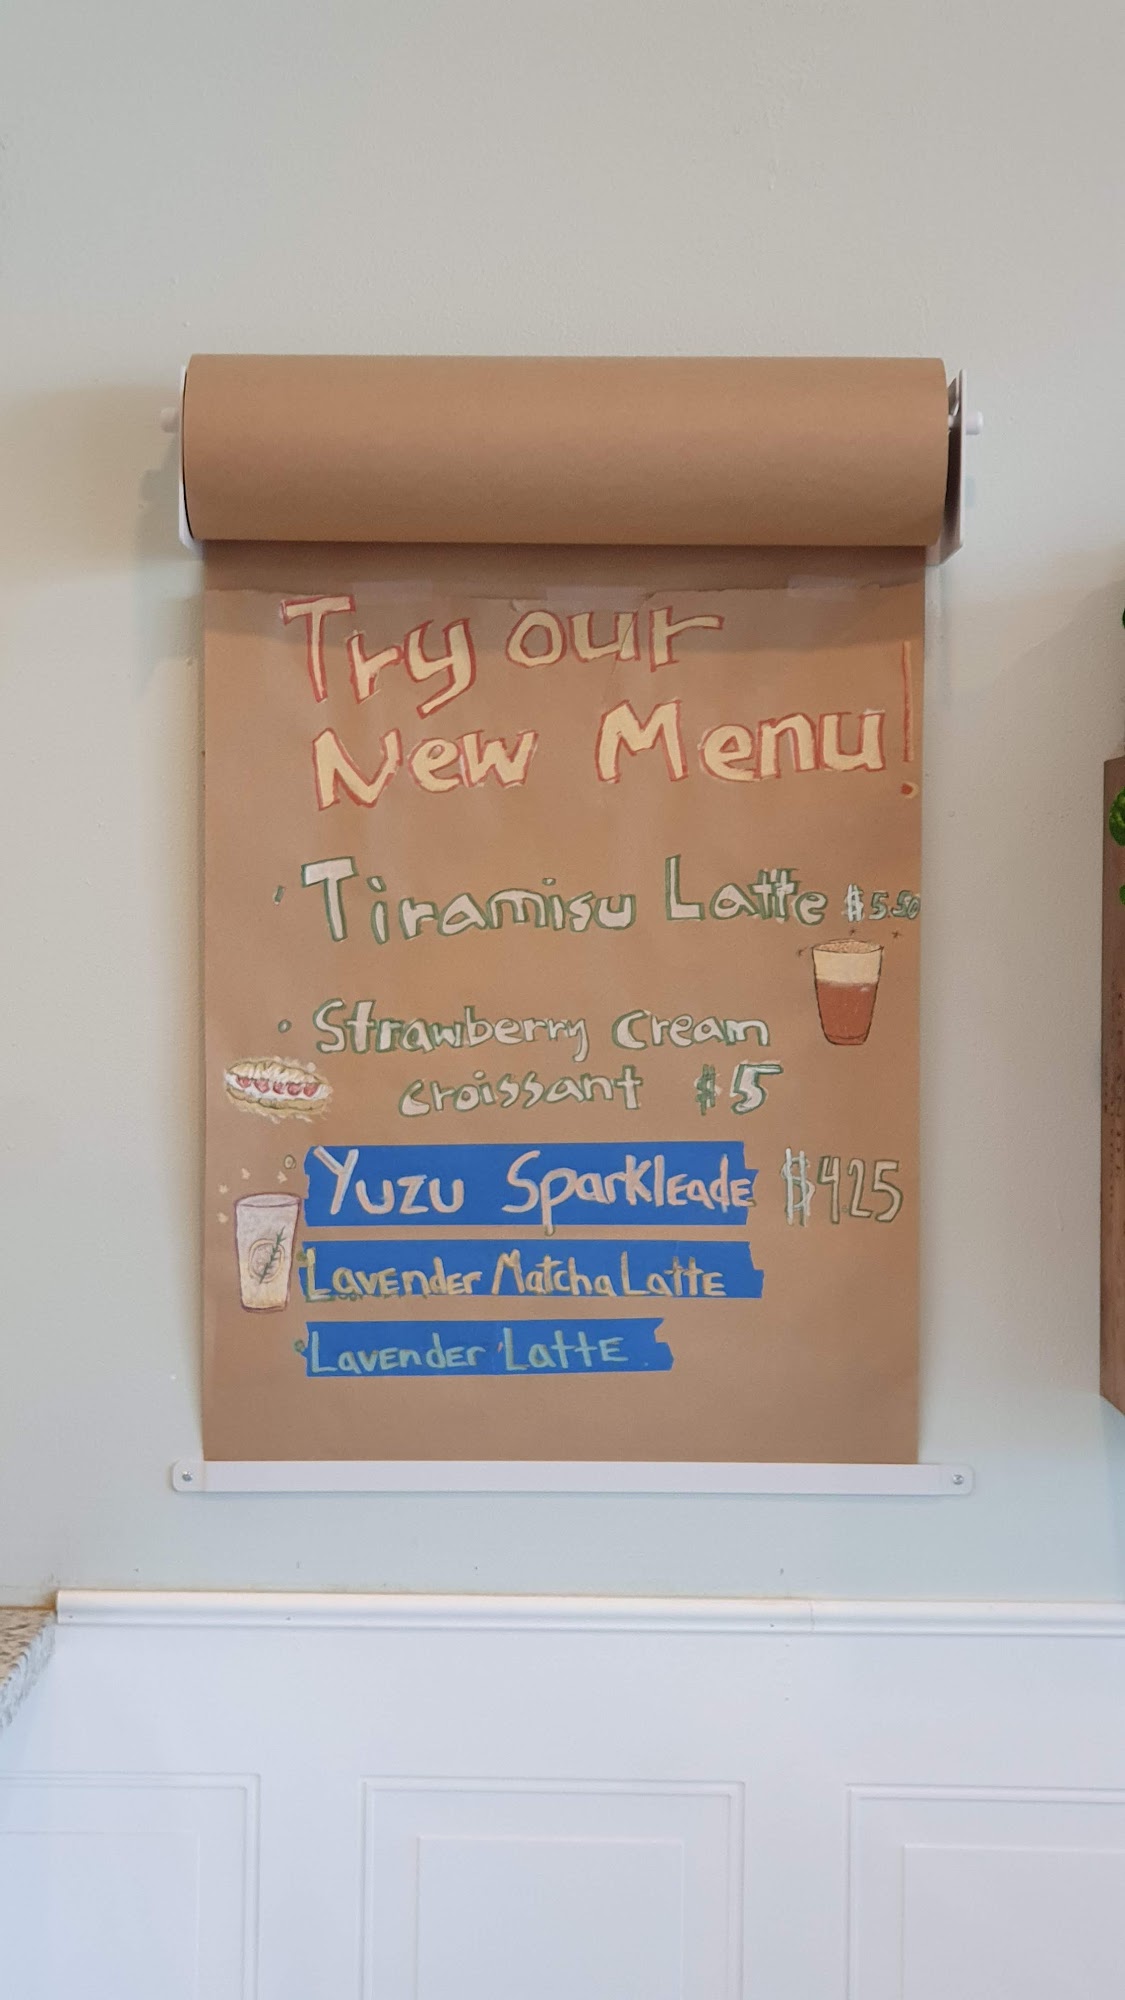 Try our
New Menu!
Tiramisu Latte $5.50
Strawberry Cream
croissant $5
Yuzu SparkleadE $4.25
LavEnder MatchaLattE
LavEnder LattE